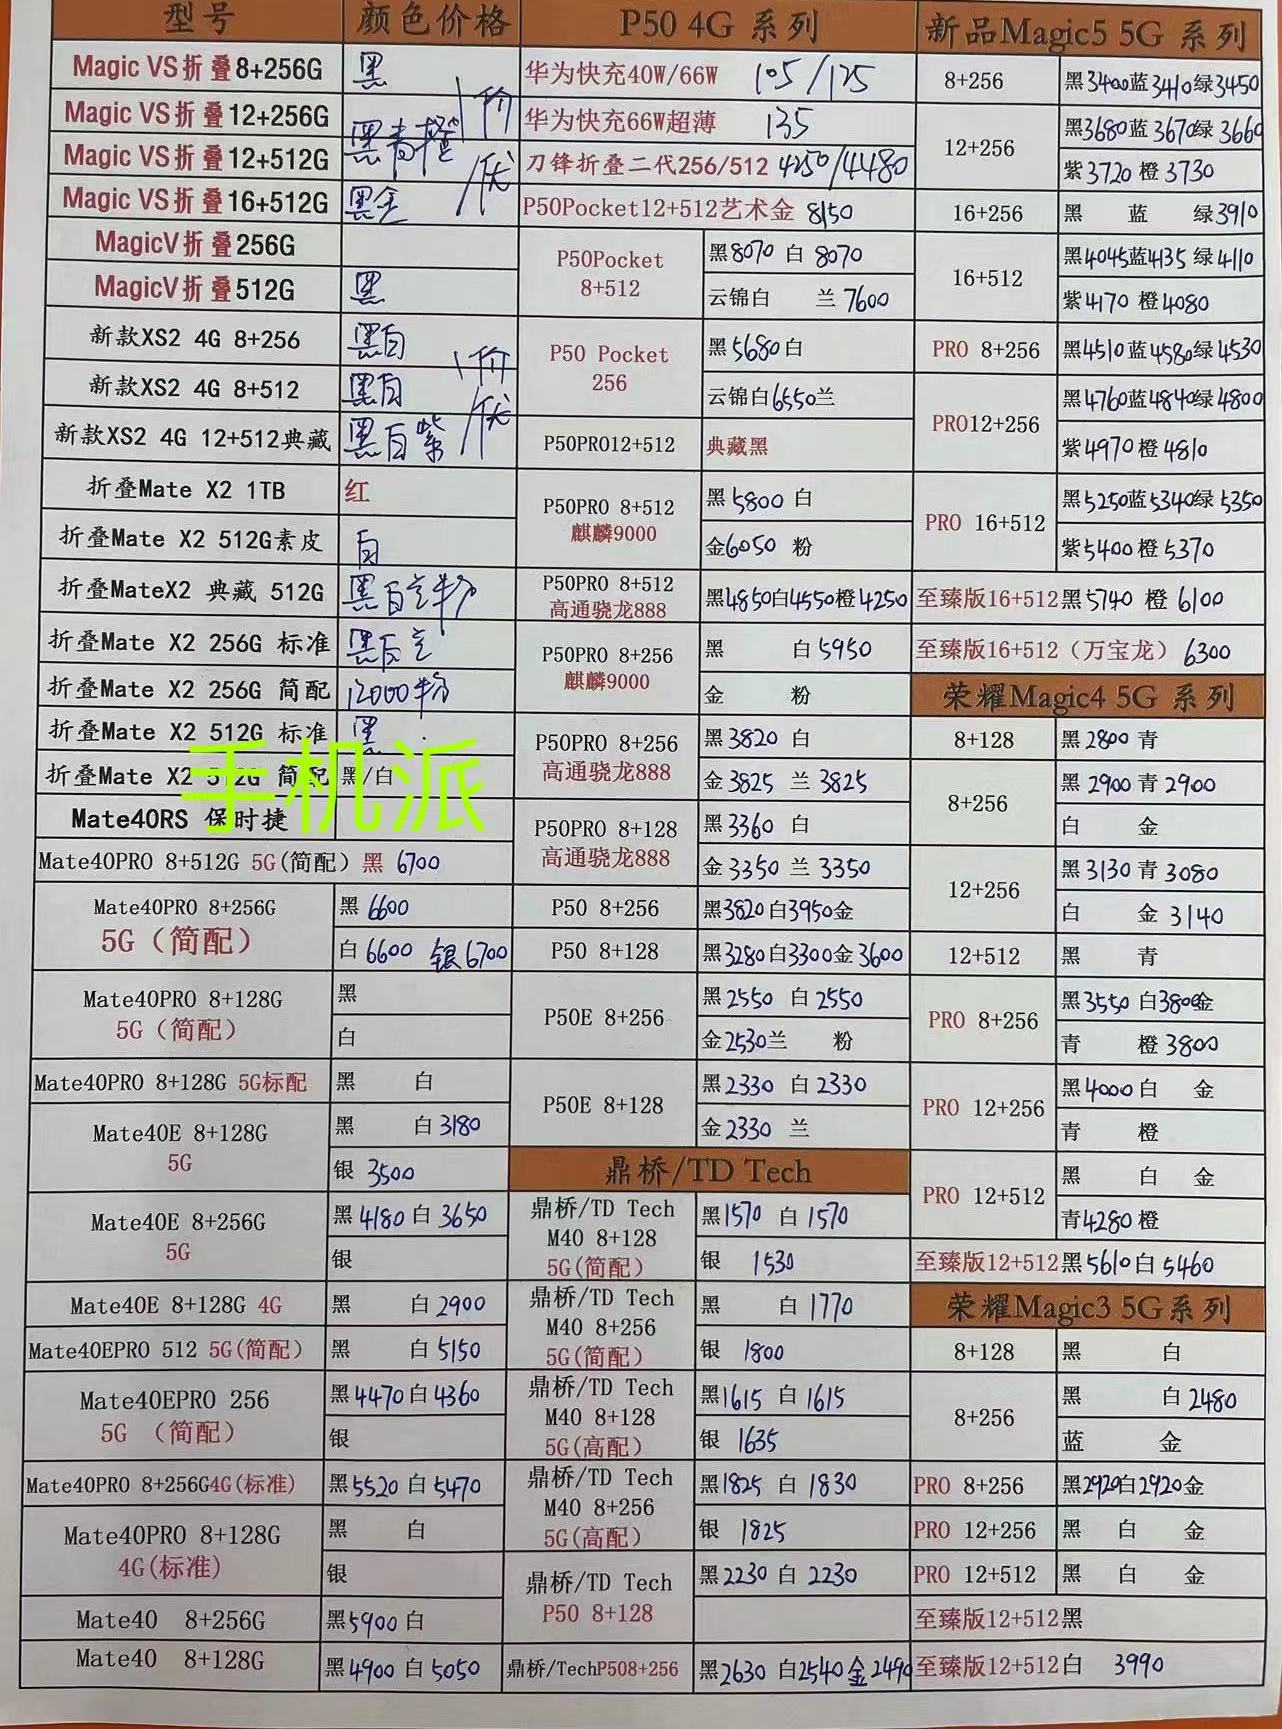 型号 颜色价格
Magic VS折叠8+256G 黑
Magic VS折叠12+256G
Magic VS折叠12+512G 黑青橙
Magic VS折叠16+512G 黑金
价
优
MagicV折叠256G
MagicV折叠512G 黑
新款XS2 4G 8+256 黑白
新款XS2 4G 8+512 黑白
新款XS2 4G 12+512典藏 黑白紫
价
优
折叠Mate X2 1TB 红
折叠Mate X2 512G素皮 白
折叠MateX2 典藏 512G 黑白
折叠Mate X2 256G 标准 黑
折叠Mate X2 256G 简配 12000粉
折叠Mate X2 512G 标准 黑
折叠Mate X2 512G 简配 黑/白
手机派
Mate40RS 保时捷
Mate40PRO 8+512G 5G(简配) 黑 6700
Mate40PRO 8+256G
5G（简配）
黑 6600
白 6600 银 6700
Mate40PRO 8+128G
5G（简配）
黑
白
Mate40PRO 8+128G 5G标配 黑 白
Mate40E 8+128G
5G
黑 白 3180
银 3500
Mate40E 8+256G
5G
黑 4180 白 3650
银
Mate40E 8+128G 4G 黑 白 2900
Mate40EPRO 512 5G(简配) 黑 白 5150
Mate40EPRO 256
5G （简配）
黑 4470 白 4360
银
Mate40PRO 8+256G4G(标准) 黑 5520 白 5470
Mate40PRO 8+128G
4G(标准)
黑 白
银
Mate40 8+256G 黑 5900 白
Mate40 8+128G 黑 4900 白 5050
P50 4G 系列
华为快充40W/66W 105/125
华为快充66W超薄 135
刀锋折叠二代256/512 4250/4480
P50Pocket12+512艺术金 8150
P50Pocket
8+512
黑 8070 白 8070
云锦白 兰 7600
P50 Pocket
256
黑 5680 白
云锦白 6550 兰
P50PRO12+512 典藏黑
P50PRO 8+512
麒麟9000
黑 5800 白
金 6050 粉
P50PRO 8+512
高通骁龙888
黑 4850 白 4550 橙 4250
P50PRO 8+256
麒麟9000
黑 白 5950
金 粉
P50PRO 8+256
高通骁龙888
黑 3820 白
金 3825 兰 3825
P50PRO 8+128
高通骁龙888
黑 3360 白
金 3350 兰 3350
P50 8+256 黑 3820 白 3950 金
P50 8+128 黑 3280 白 3300 金 3600
P50E 8+256
黑 2550 白 2550
金 2530 兰 粉
P50E 8+128
黑 2330 白 2330
金 2330 兰
鼎桥/TD Tech
鼎桥/TD Tech
M40 8+128
5G(简配)
黑 1570 白 1570
银 1530
鼎桥/TD Tech
M40 8+256
5G(简配)
黑 白 1770
银 1800
鼎桥/TD Tech
M40 8+128
5G(高配)
黑 1615 白 1615
银 1635
鼎桥/TD Tech
M40 8+256
5G(高配)
黑 1825 白 1830
银 1825
鼎桥/TD Tech
P50 8+128
黑 2230 白 2230
鼎桥/TechP508+256 黑 2630 白 2540 金 2490
新品Magic5 5G 系列
8+256 黑 3400 蓝 3410 绿 3450
12+256
黑 3680 蓝 3670 绿 3660
紫 3720 橙 3730
16+256 黑 蓝 绿 3910
16+512
黑 4045 蓝 4135 绿 4110
紫 4170 橙 4080
PRO 8+256 黑 4510 蓝 4580 绿 4530
PRO12+256
黑 4760 蓝 4840 绿 4800
紫 4970 橙 4810
PRO 16+512
黑 5250 蓝 5340 绿 5350
紫 5400 橙 5370
至臻版16+512 黑 5740 橙 6100
至臻版16+512（万宝龙） 6300
荣耀Magic4 5G 系列
8+128 黑 2800 青
8+256
黑 2900 青 2900
白 金
12+256
黑 3130 青 3080
白 金 3140
12+512 黑 青
PRO 8+256
黑 3550 白 3800 金
青 橙 3800
PRO 12+256
黑 4000 白 金
青 橙
PRO 12+512
黑 白 金
青 4280 橙
至臻版12+512 黑 5610 白 5460
荣耀Magic3 5G系列
8+128 黑 白
8+256
黑 白 2480
蓝 金
PRO 8+256 黑 2920 白 2920 金
PRO 12+256 黑 白 金
PRO 12+512 黑 白 金
至臻版12+512黑
至臻版12+512白 3990